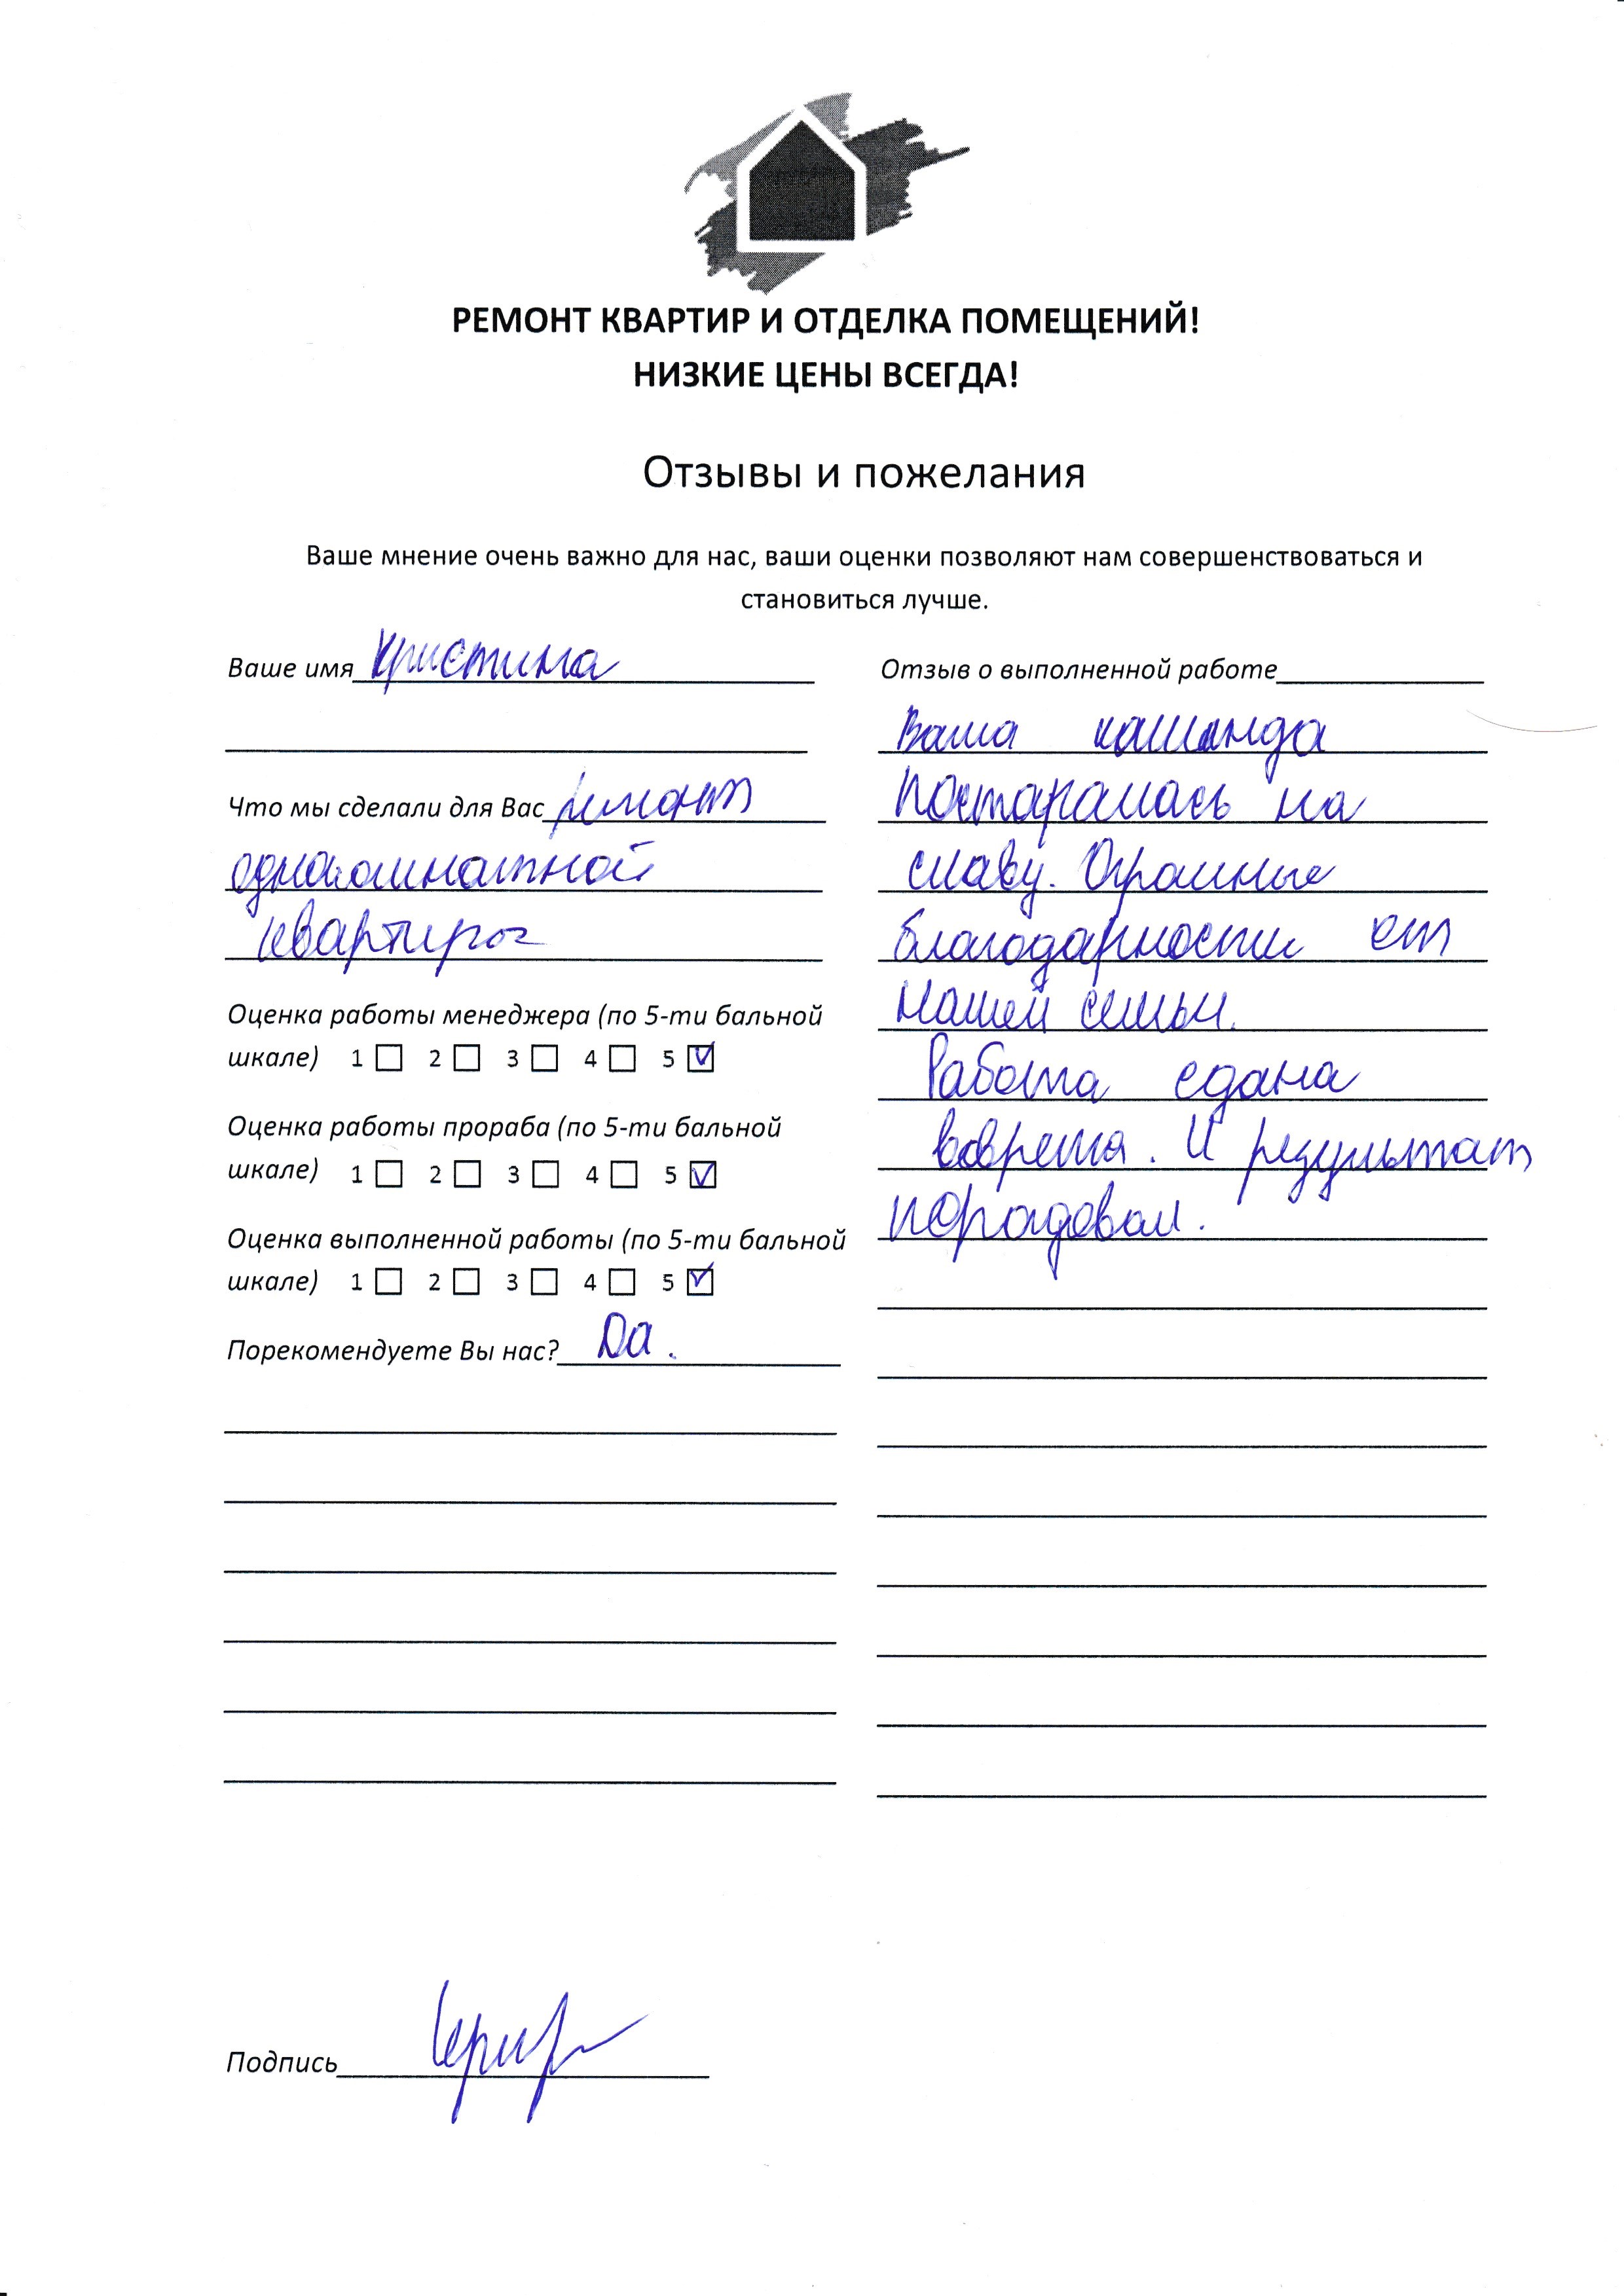 РЕМОНТ КВАРТИР И ОТДЕЛКА ПОМЕЩЕНИЙ!
НИЗКИЕ ЦЕНЫ ВСЕГДА!
Отзывы и пожелания
Ваше мнение очень важно для нас, ваши оценки позволяют нам совершенствоваться и
становиться лучше.
Ваше имя Кристина
Что мы сделали для Вас ремонт
однокомнатной
квартиры
Оценка работы менеджера (по 5-ти бальной
шкале) 1 ☐ 2 ☐ 3 ☐ 4 ☐ 5 ☑
Оценка работы прораба (по 5-ти бальной
шкале) 1 ☐ 2 ☐ 3 ☐ 4 ☐ 5 ☑
Оценка выполненной работы (по 5-ти бальной
шкале) 1 ☐ 2 ☐ 3 ☐ 4 ☐ 5 ☑
Порекомендуете Вы нас? Да.
Отзыв о выполненной работе
Ваша команда
постаралась на
славу. Огромные
благодарности от
нашей семьи.
Работа сдана
вовремя. И результат
порадовал.
Подпись